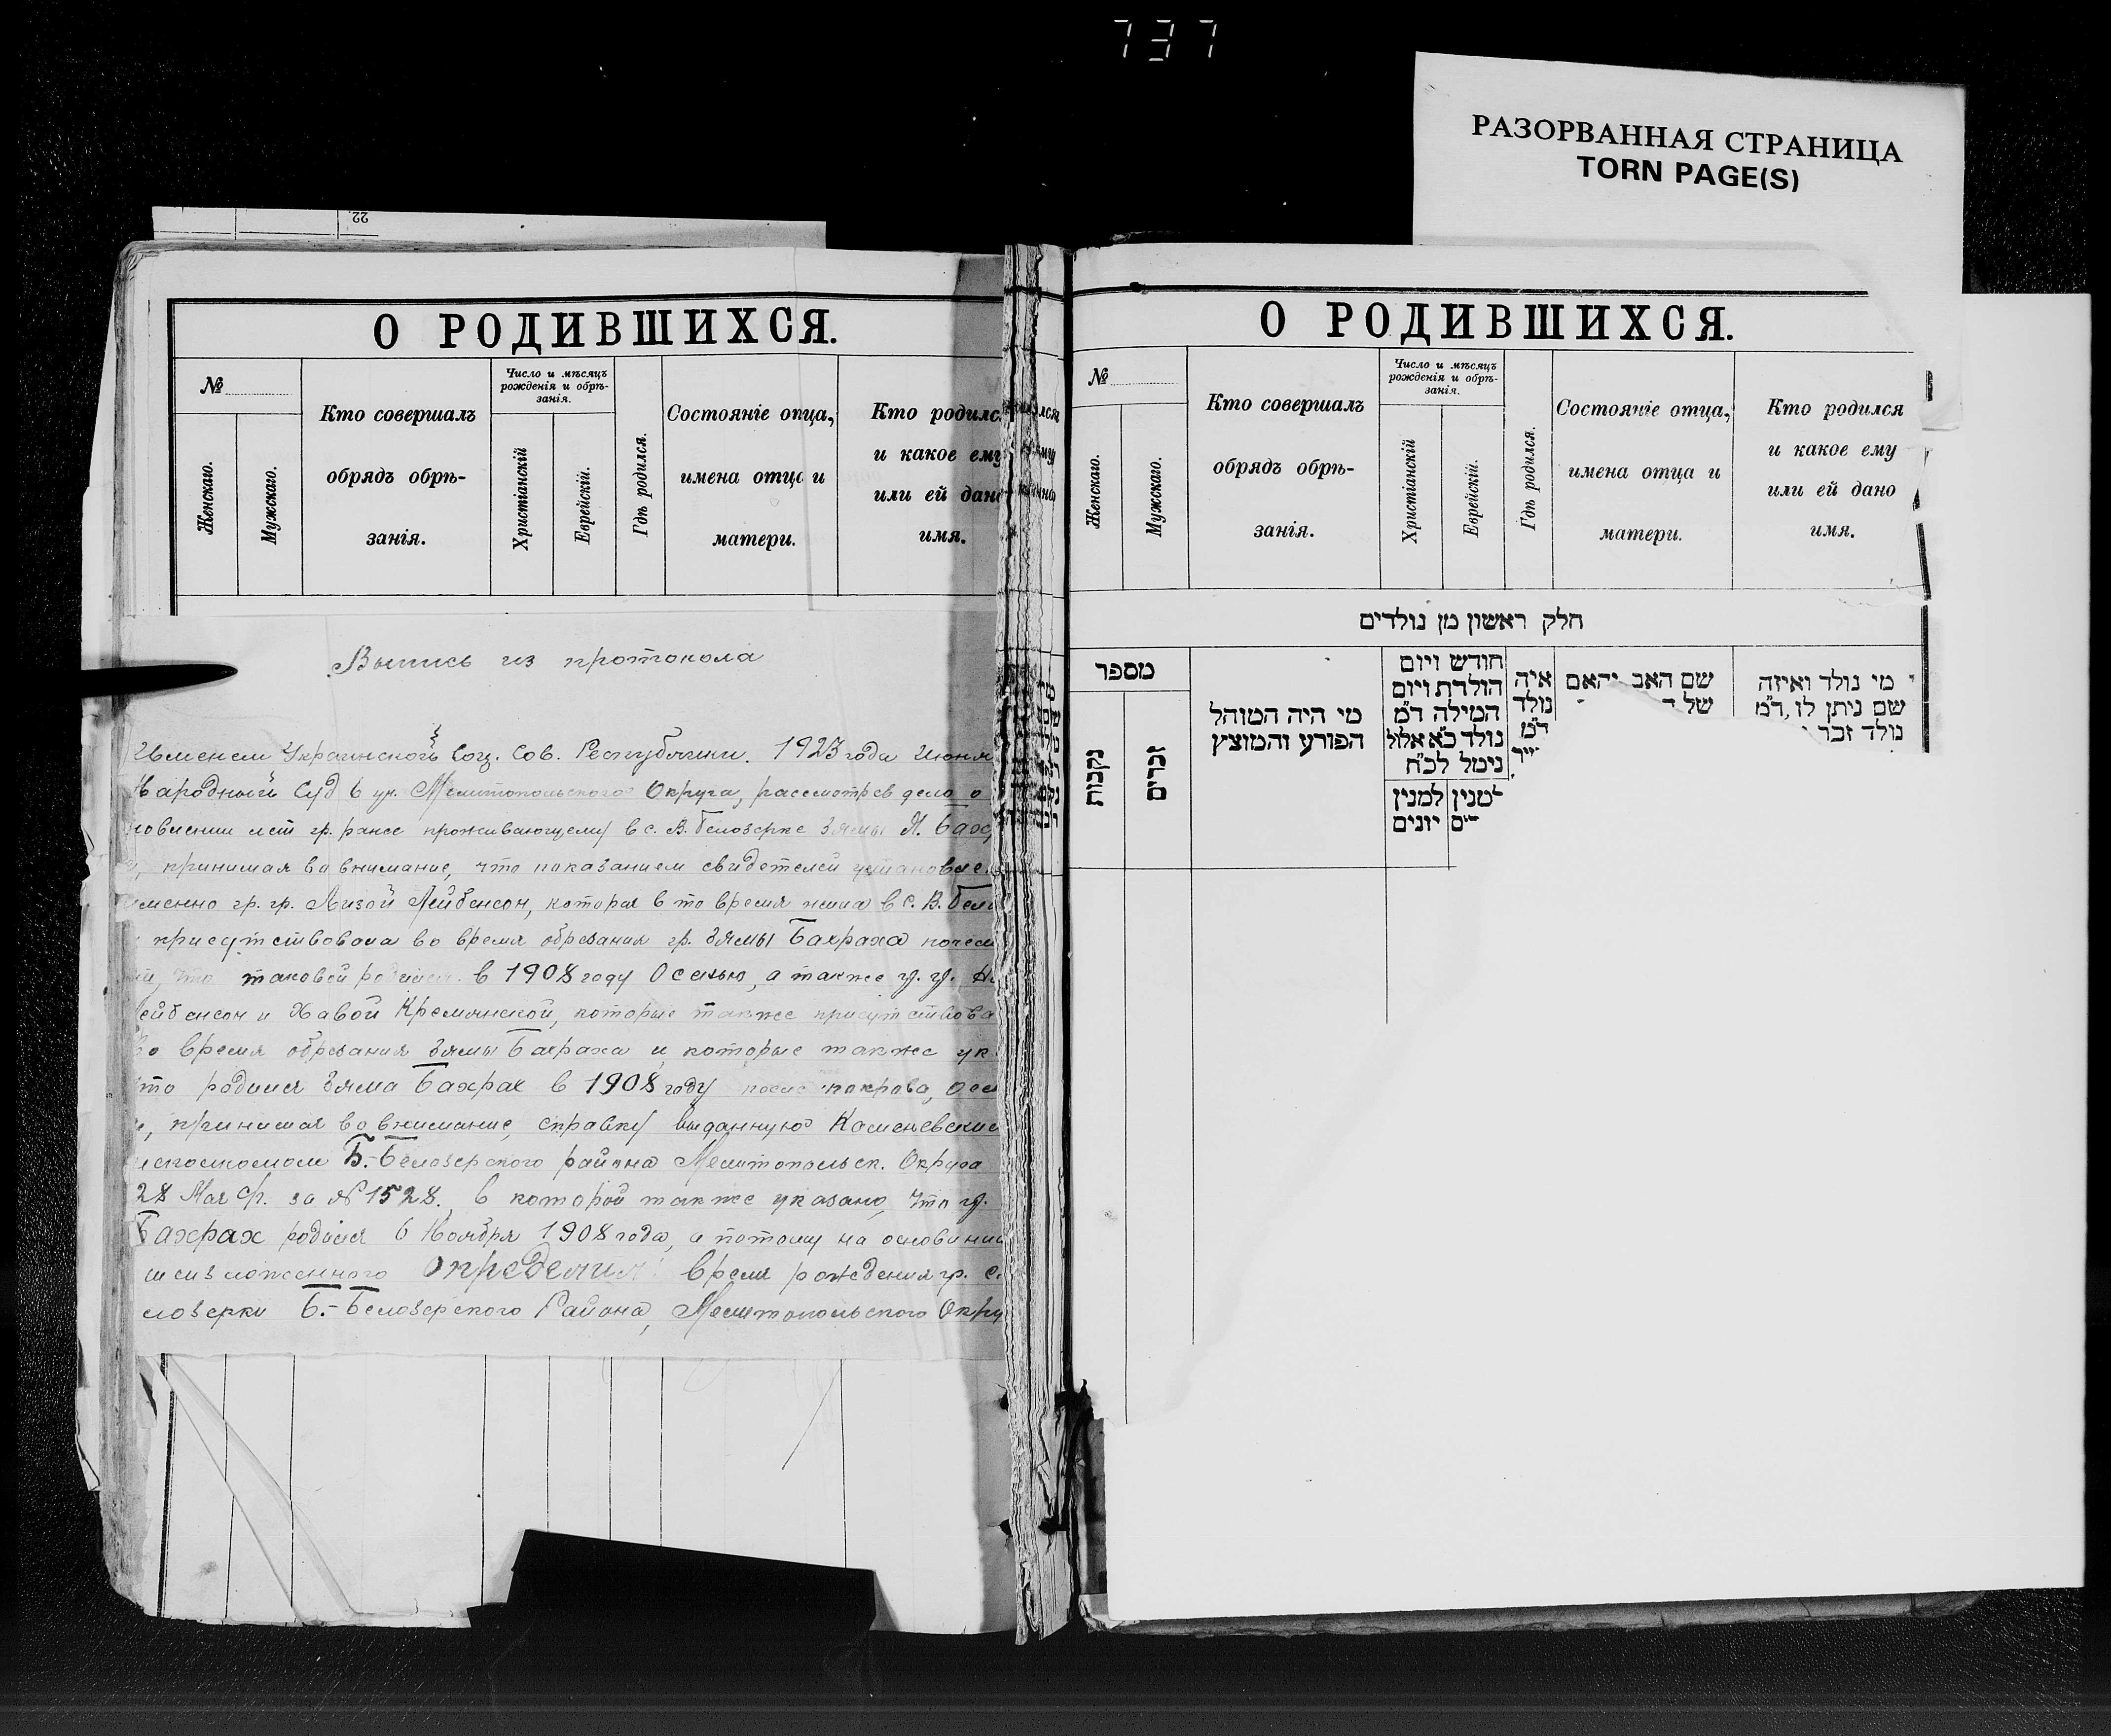 737
РАЗОРВАННАЯ СТРАНИЦА
TORN PAGE(S)
22.
О РОДИВШИХСЯ.
№
Женскаго.
Мужскаго.
Кто совершалъ
обрядъ обрѣ-
занія.
Число и мѣсяцъ
рожденія и обрѣ-
занія.
Христіанскій
Еврейскій.
Гдѣ родился.
Состояніе отца,
имена отца и
матери.
Кто родилс
и какое ему
или ей дано
имя.
Выпись из протокола
Именем Украинской Соц. Сов. Республики. 1923 года Июня
Народный Суд 6 уч. Мелитопольского Округа, рассмотрев дело о
новлении лет гр. ранее проживающему в с. В. Белозерке Зямы М. Бах
принимая во внимание, что показанием свидетелей установле
именно гр. гр. Лизой Лейбенсон, которая в то время жила в с. В. Бело
присутствовала во время обрезания гр. Зямы Бахраха
что таковой родился в 1908 году Осенью, а также гр. гр.
ейбенсон и Хавой Кремянской, которые также присутствова
Во время обрезания Зямы Бахраха и которые также ук
что родился Зяма Бахрах в 1908 году после покрова, осе
принимая во внимание, справку выданную Каменевским
исполкомом Б.-Белозерского района Мелитопольск. Округа
28 Мая с/г. за № 1528, в которой также указано, что гр.
Бахрах родился 6 Ноября 1908 года, а потому на основании
шеизложенного Определил: время рождения гр. с.
лозерки Б.-Белозерского Района, Мелитопольского Окру
О РОДИВШИХСЯ.
№
Женскаго.
Мужскаго.
Кто совершалъ
обрядъ обрѣ-
занія.
Число и мѣсяцъ
рожденія и обрѣ-
занія.
Христіанскій
Еврейскій.
Гдѣ родился.
Состояніе отца,
имена отца и
матери.
Кто родился
и какое ему
или ей дано
имя.
חלק ראשון מן נולדים
מספר
נקבות
זכרים
מי היה המוהל
הפורע והמוצץ
חודש ויום
הולדת ויום
המילה ד"מ
נולד כ"א אלול
נימל לכ"ח
למנין
יונים
איה
נולד
ד"מ
שם האב והאם
של
מי נולד ואיזה
שם ניתן לו, ד"מ
נולד זכר